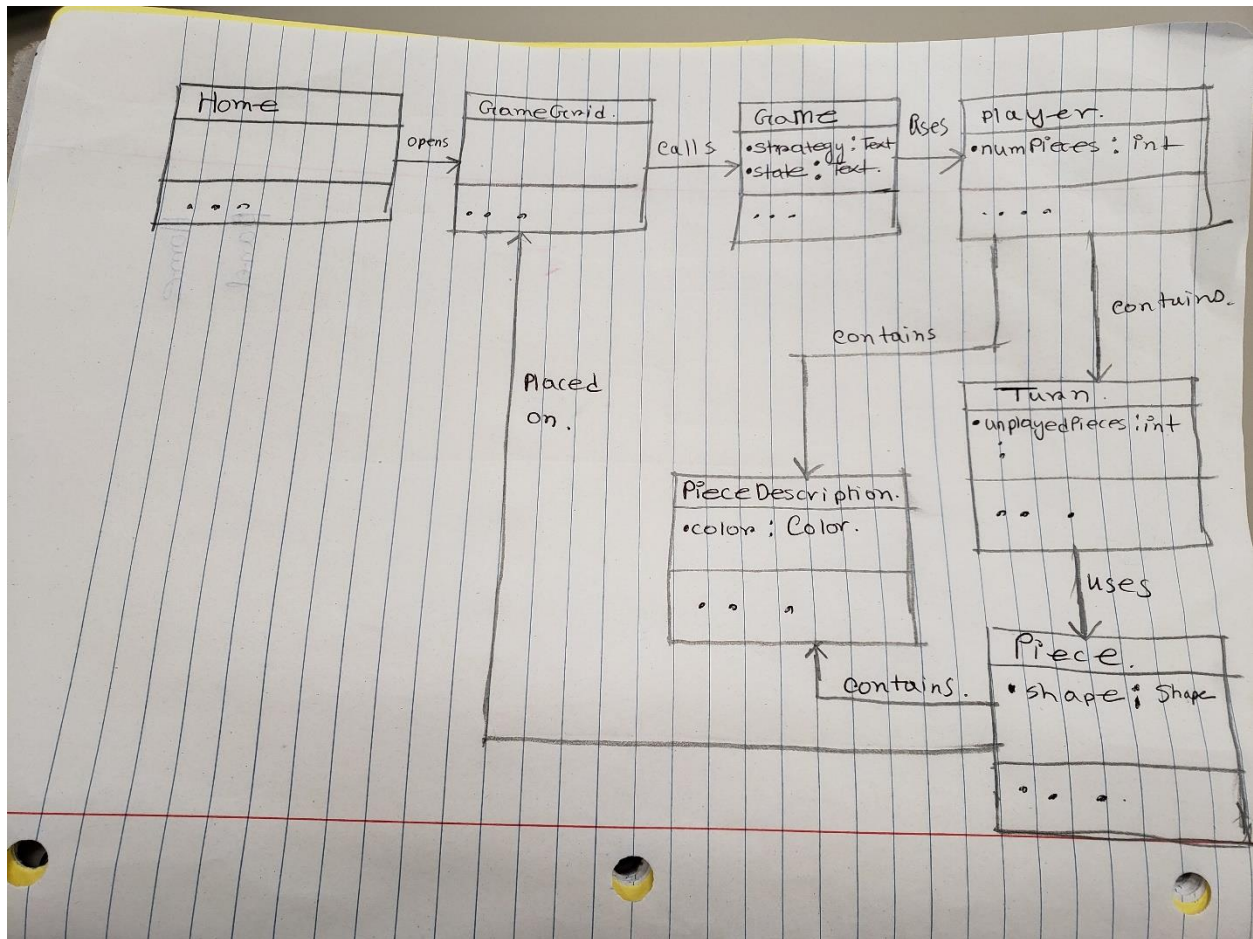 Home
opens
GameGrid.
calls
Game
•strategy: Text
•state: Text.
...
Uses
player.
•numPieces: int
....
contains
contains.
Placed
on.
Turn.
•unplayedPieces: int
:
...
PieceDescription.
•color: Color.
...
uses
Piece.
•shape: Shape
...
contains.
...
...